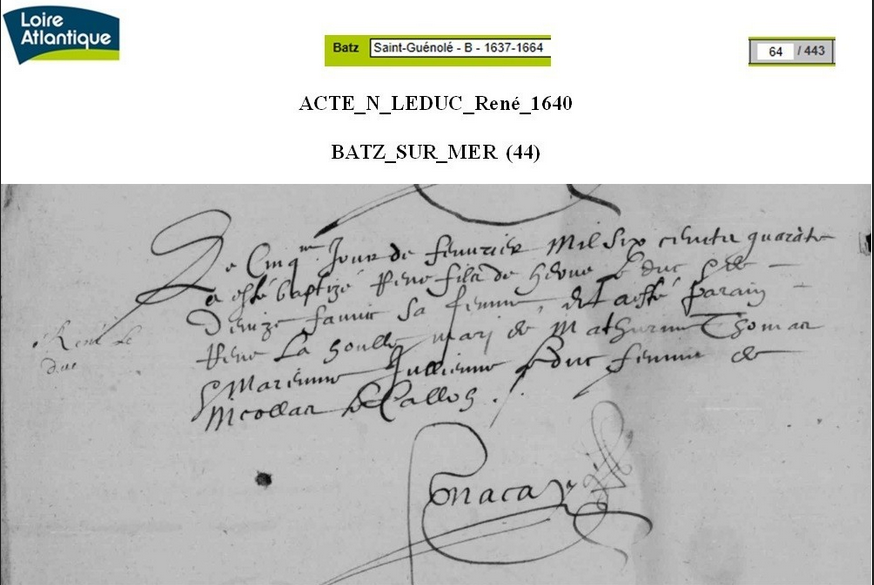 Loire
Atlantique
Batz Saint-Guénolé - B - 1637-1664
64 / 443
ACTE_N_LEDUC_René_1640
BATZ_SUR_MER (44)
Le Cinqme Jour de feuurier Mil Six centz quarãte
a esté baptizé Rene filz de herue Le duc & de
Denize sa femme, a esté parain
Rene La houlle mari de Mathurine Thomar
& Marienne Jullienne Le duc femme de
Nicollas Le Callo
René Le
duc